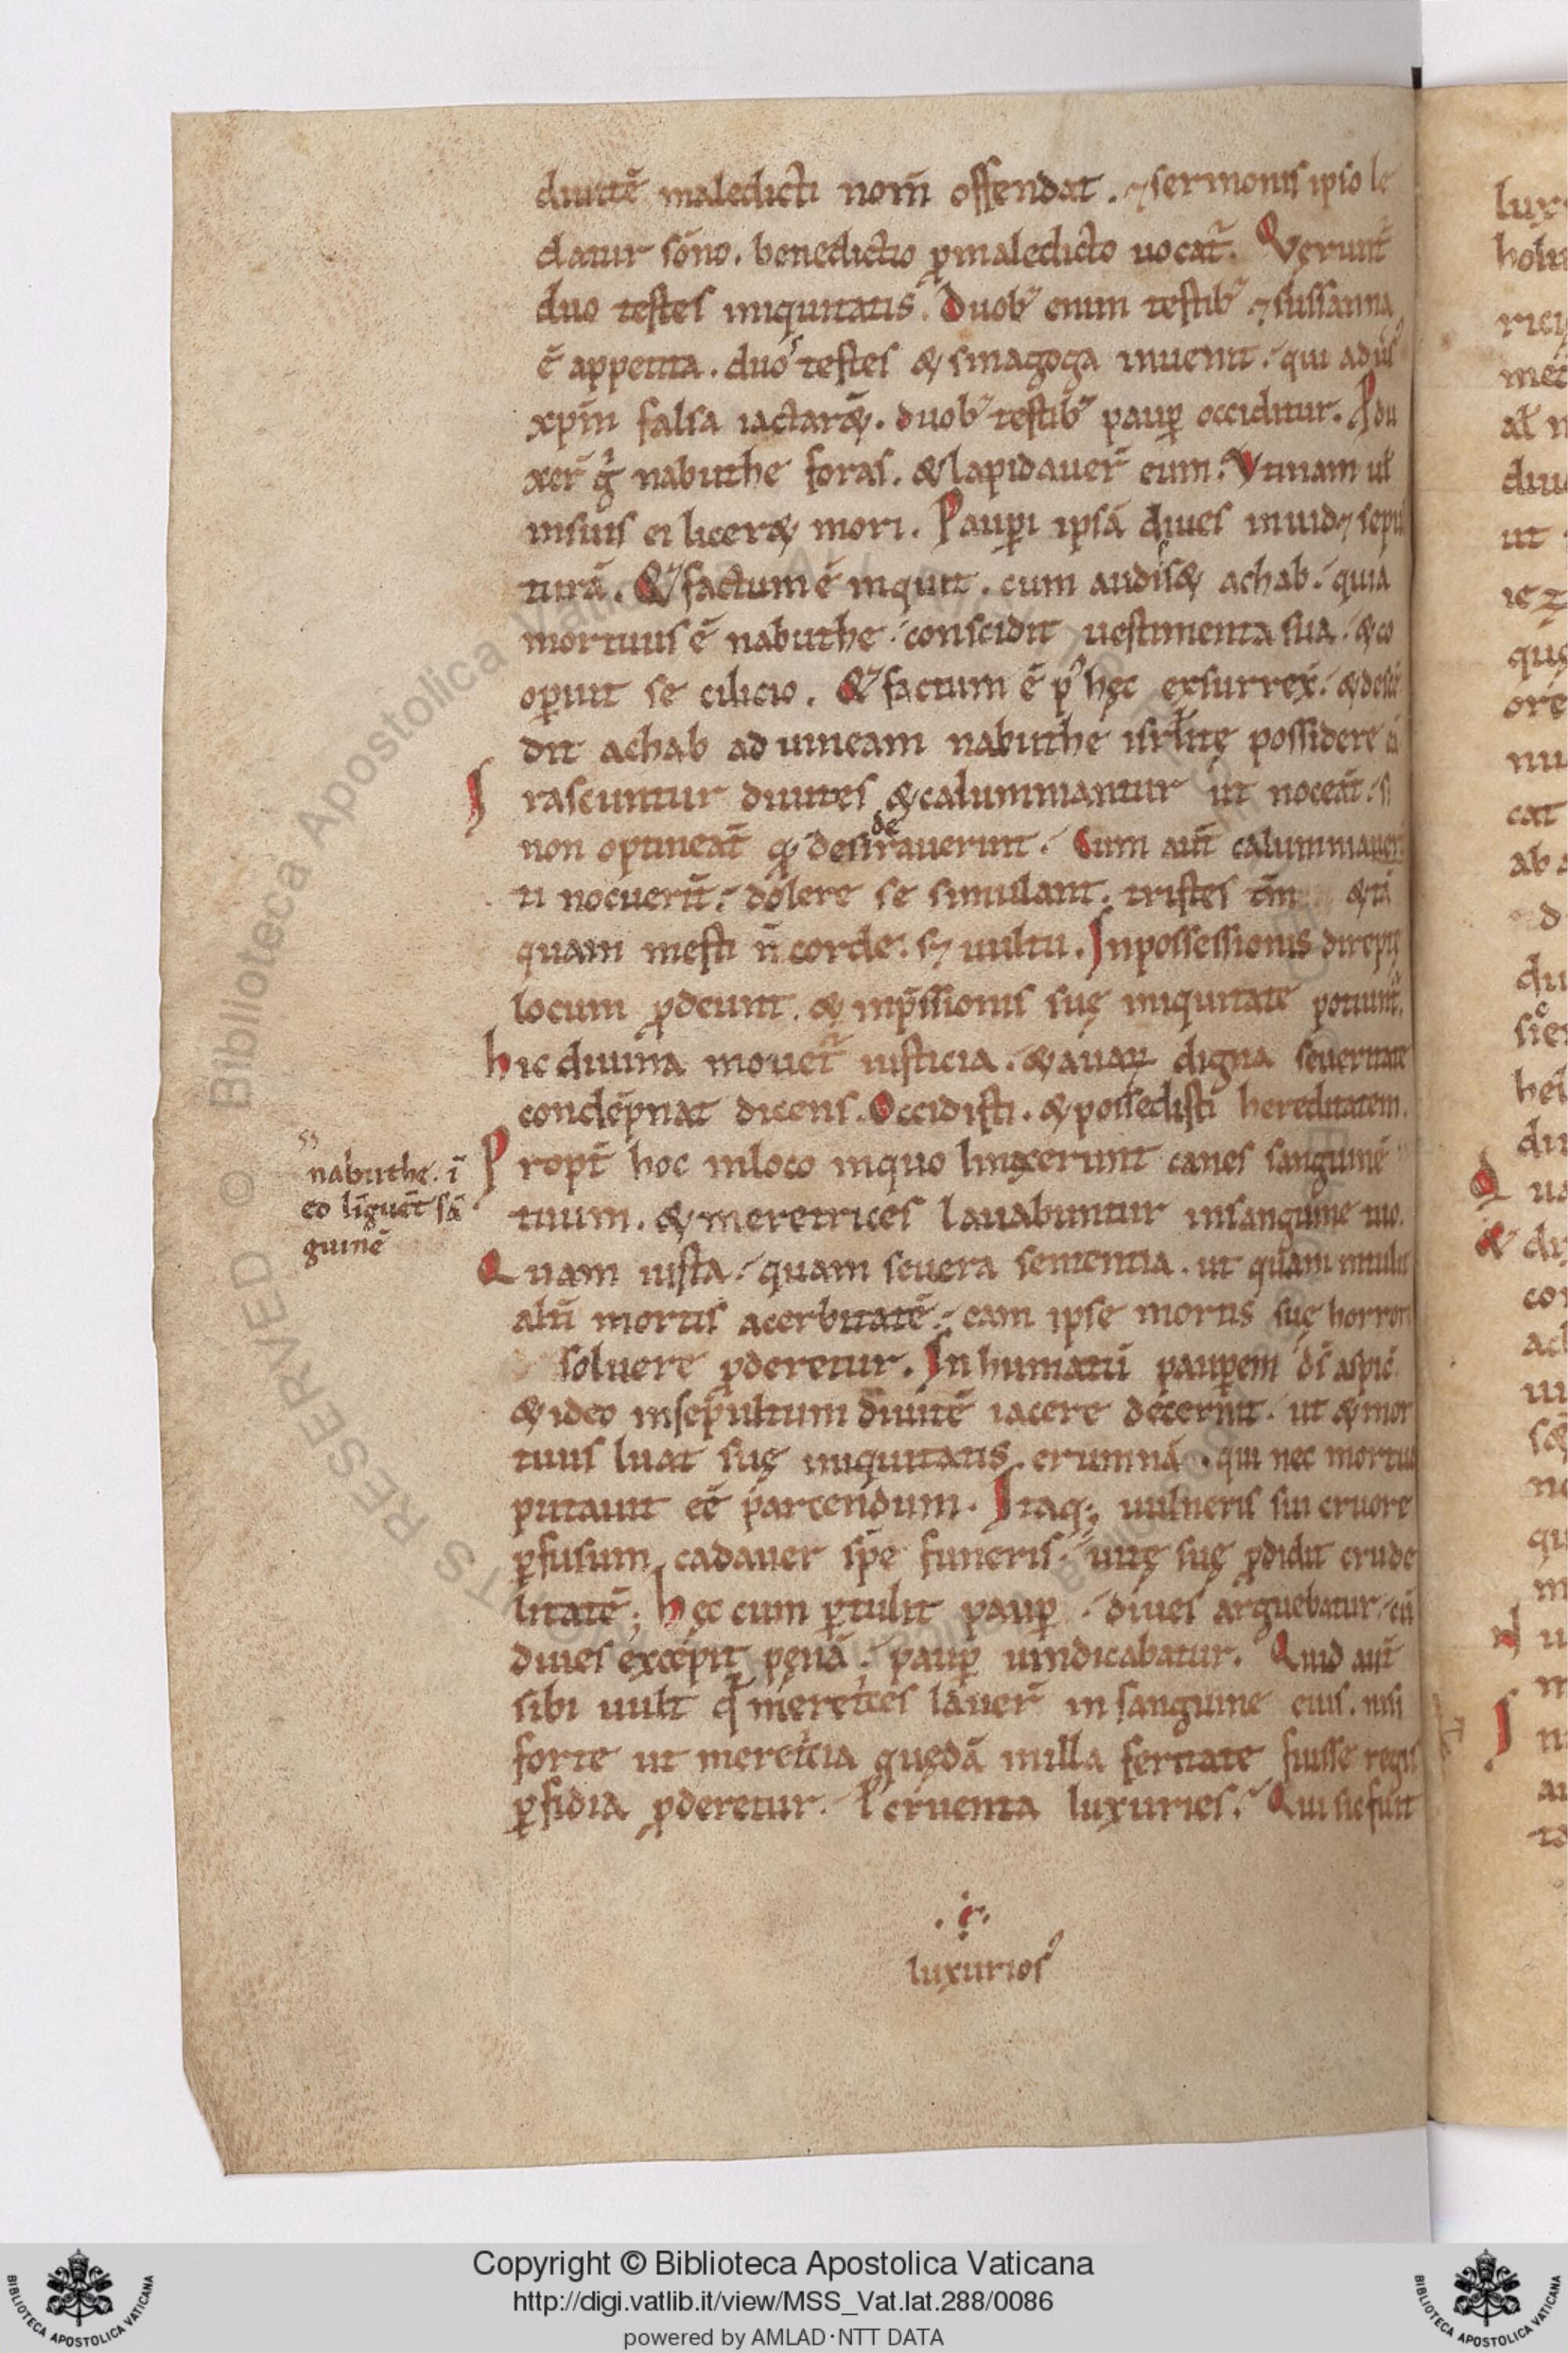 diuitē maledicti nom̄ offendat. ⁊ sermonis ipso le
datur sōno. benedictio ꝓ maledicto uocat᷑. Venerunt
duo testes iniquitatis. Duob; enim testib; ⁊ sussanna
ē appetita. duos testes & sinagoga inuenit. qui aduers᷒
xp̄m falsa iactar&. duob; testib; paup̱ occiditur. Edu
xer̄ g̊ nabuthe foras. & lapidauer̄ eum. Vtinam ul̄
insuis ei licer& mori. Paup̱i ipsā diues inuid& sepul
turā. & factum ē inquit. cum audiss& achab. quia
mortuus ē nabuthe. conscidit uestimenta sua. & co
op̱uit se cilicio. & factum ē p᷒ hęc exsurrex̄. & descen
dit achab ad uineam nabuthe isrl̄itę possidere eā
Irascuntur diuites & calumniantur ut noceāt. si
non optineāt qđ desiderauerunt. Cum aut̄ calumniauer
ti nocuerīt. dolere se simulant. tristes tm̄ & tā
quam mesti n̄ corde. s; uultu. In possessionis direptę
locum ꝓdeunt. & inp̄ssionis suę iniquitate potiunt᷑.
hic diuina mouet᷑ iusticia. & auarū digna seueritate
condēpnat dicens. Occidisti. & possedisti hereditatem.
Propt̄ hoc inloco inquo linxerunt canes sanguinē
nabuthe. ī
eo līguēt sā
guinē
tuum. & meretrices lauabuntur insanguine tuo.
Quam iusta. quam seuera sententia. ut quam intulit
alii mortis acerbitatē. eam ipse mortis suę horrore
soluere ꝓderetur. Inhumatū paup̱em d̄s aspic̄
& ideo insepultum diuitē iacere decernit. ut & mor
tuus luat suę iniquitatis erumnā. qui nec mortuo
putauit eē parcendum. Itaq; uulneris sui cruore
p̱fusum cadauer spe funeris. uitę suę ꝓdidit crude
litatē; hęc cum p̱tulit paup̱. diues arguebatur. cū
diues excepit penā. paup̱ uindicabatur. Quid aut̄
sibi uult qđ meretrices lauer̄ in sanguine eius. nisi
forte ut meretricia quędā in illa feritate fuisse regis
p̱fidia ꝓderetur. l̄ cruenta luxuries. Qui sic fuit
luxurios᷒
Copyright © Biblioteca Apostolica Vaticana
http://digi.vatlib.it/view/MSS_Vat.lat.288/0086
powered by AMLAD·NTT DATA